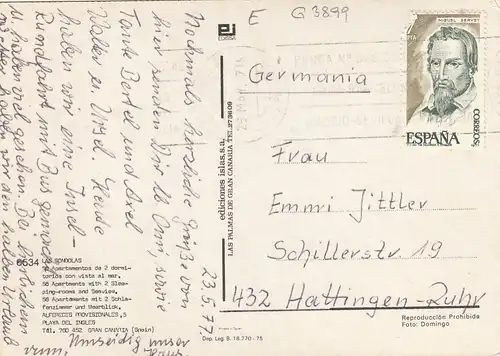 E G 3899
23.5.77
Nochmals herzliche Grüße von
hier senden Dir lb Omi, sowie
Tante Bertel und Axel
Walter u. Ursel. Heute
haben wir eine Insel-
Rundfahrt mit Bus gemacht
u. haben viel gesehen. Bei herrlichem
wir den halben Urlaub
rum,
unser
6634
LAS GONDOLAS
58 Apartamentos de 2 dormi-
torios con vista al mar.
58 Apartments with 2 Slee-
ping-rooms and Seaview.
58 Apartments mit 2 Schla-
fenzimmer und Meerblick.
ALFERECES PROVISIONALES, 5
PLAYA DEL INGLES
Tél. 760 452 GRAN CANARIA (Spain)
ediciones islas, s.a.
LAS PALMAS DE GRAN CANARIA TEL. 273609
Dep. Leg. B. 18.770-75
MIGUEL SERVET
ESPAÑA
CORREOS
Germania
Frau
Emmi Jittler
Schillerstr. 19
432 Hattingen-Ruhr
Reproducción Prohibida
Foto: Domingo